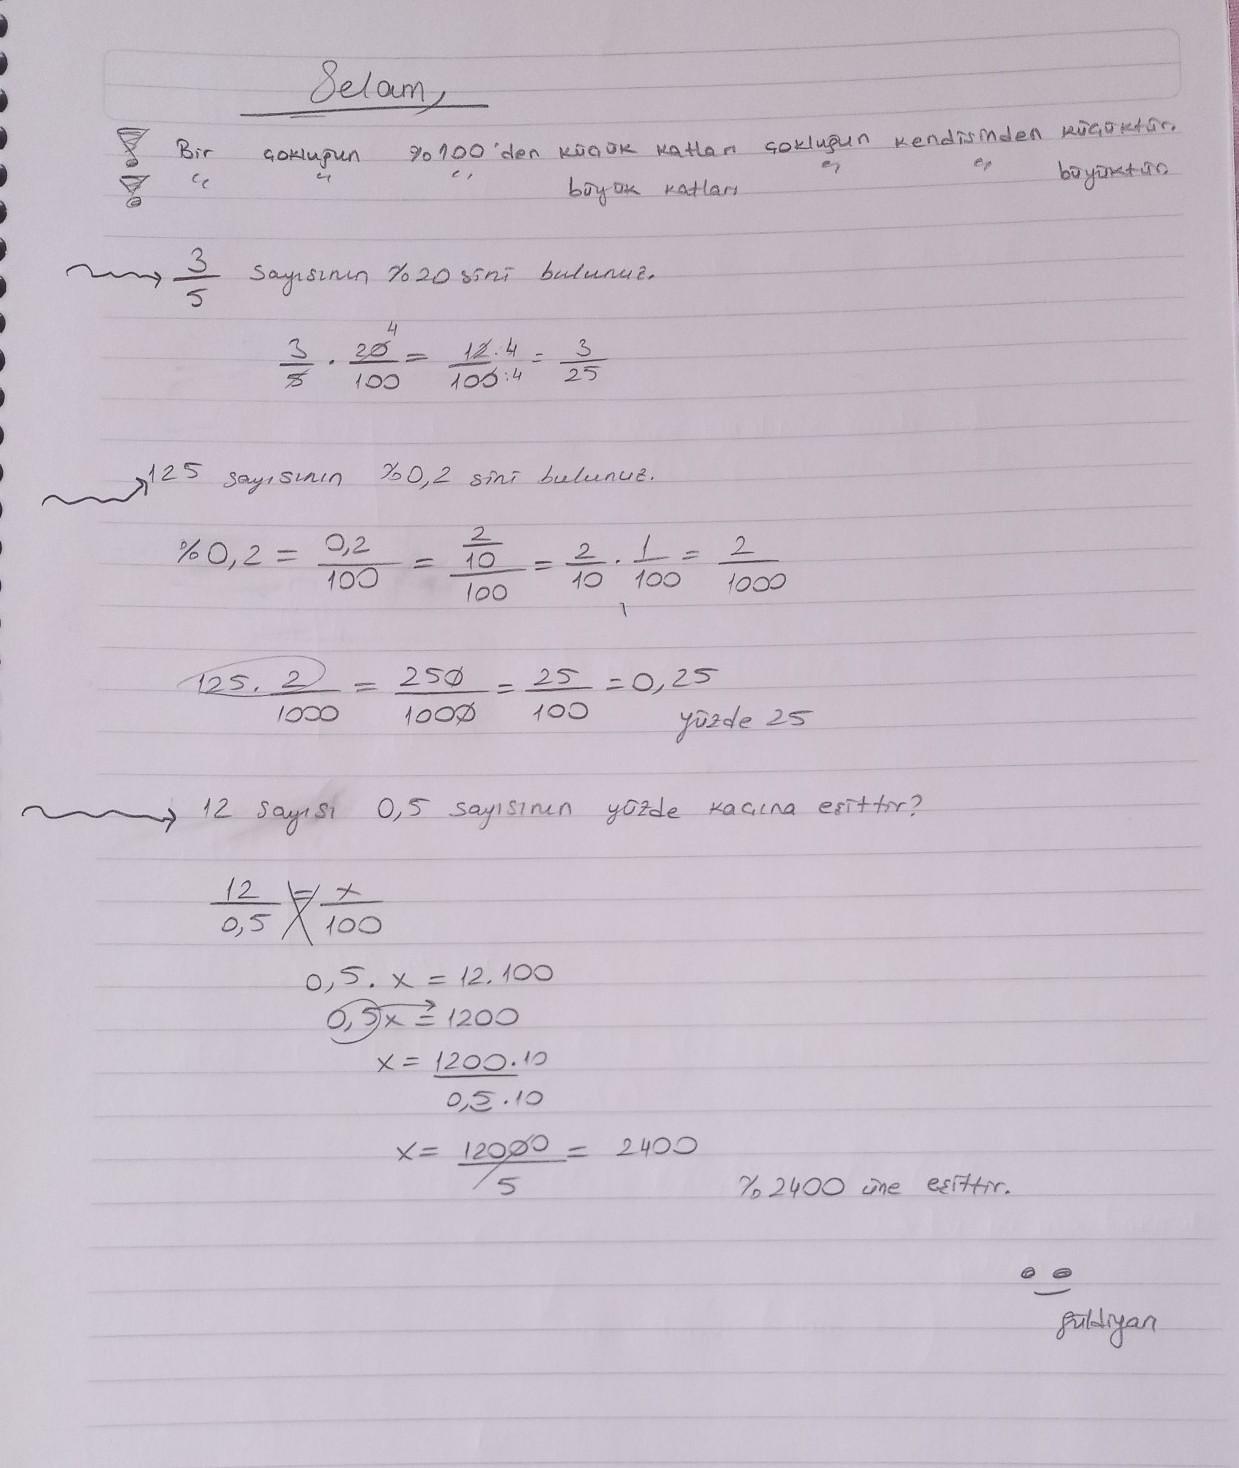 Selam,
Bir çokluğun %100'den küçük katları çokluğun kendisinden küçüktür.
" " " büyük katları " " büyüktür.
3/5 sayısının %20 sini bulunuz.
3/5 . 20/100 4 = 12:4/100:4 = 3/25
125 sayısının %0,2 sini bulunuz.
%0,2 = 0,2/100 = 2/10/100 = 2/10 . 1/100 = 2/1000
125. 2/1000 = 250/1000 = 25/100 = 0,25
yüzde 25
12 sayısı 0,5 sayısının yüzde kaçına eşittir?
12/0,5 = x/100
0,5. x = 12.100
0,5x = 1200
x = 1200.10/0,5.10
x = 12000/5 = 2400
%2400 üne eşittir.